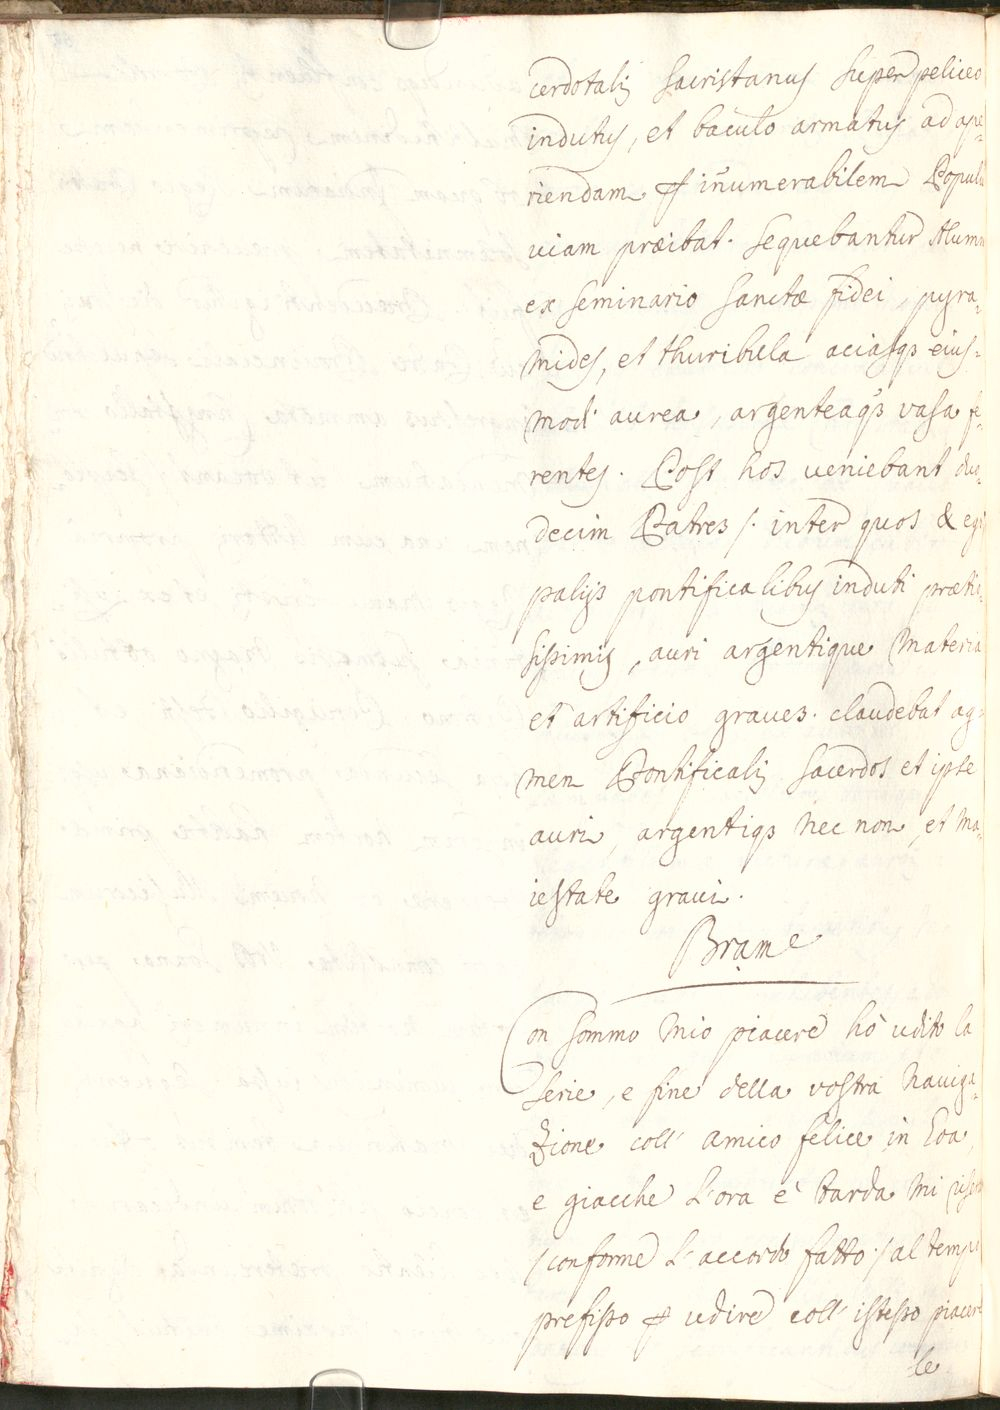 cerdotalis sacristanus super peliceo
indutus, et baculo armatus ad ape-
riendam ꝑ iñumerabilem Populũ
uiam præibat. Sequebantur Alumni
ex Seminario sanctæ fidei, pyra-
mides, et thuribula aciasqꝫ eius-
modi aurea, argenteaqꝫ vasa fe-
rentes. Post hos ueniebant duo-
decim Patres /. inter quos & egо
palijs pontificalibus induti prætio-
sissimis, auri argentique materia
et artificio graues. claudebat ag-
men Pontificalis Sacerdos et ipse
auri, argentiqꝫ nec non, et ma-
iestate graui.
Brame
Con sommo mio piacere hò udito la
serie, e fine della vostra nauiga-
zione coll' amico felice in Goa,
e giacche L'ora e' tarda mi riserbo
/conforme L'accordo fatto./ al tempo
prefisso ꝑ udire coll' istesso piacere
le